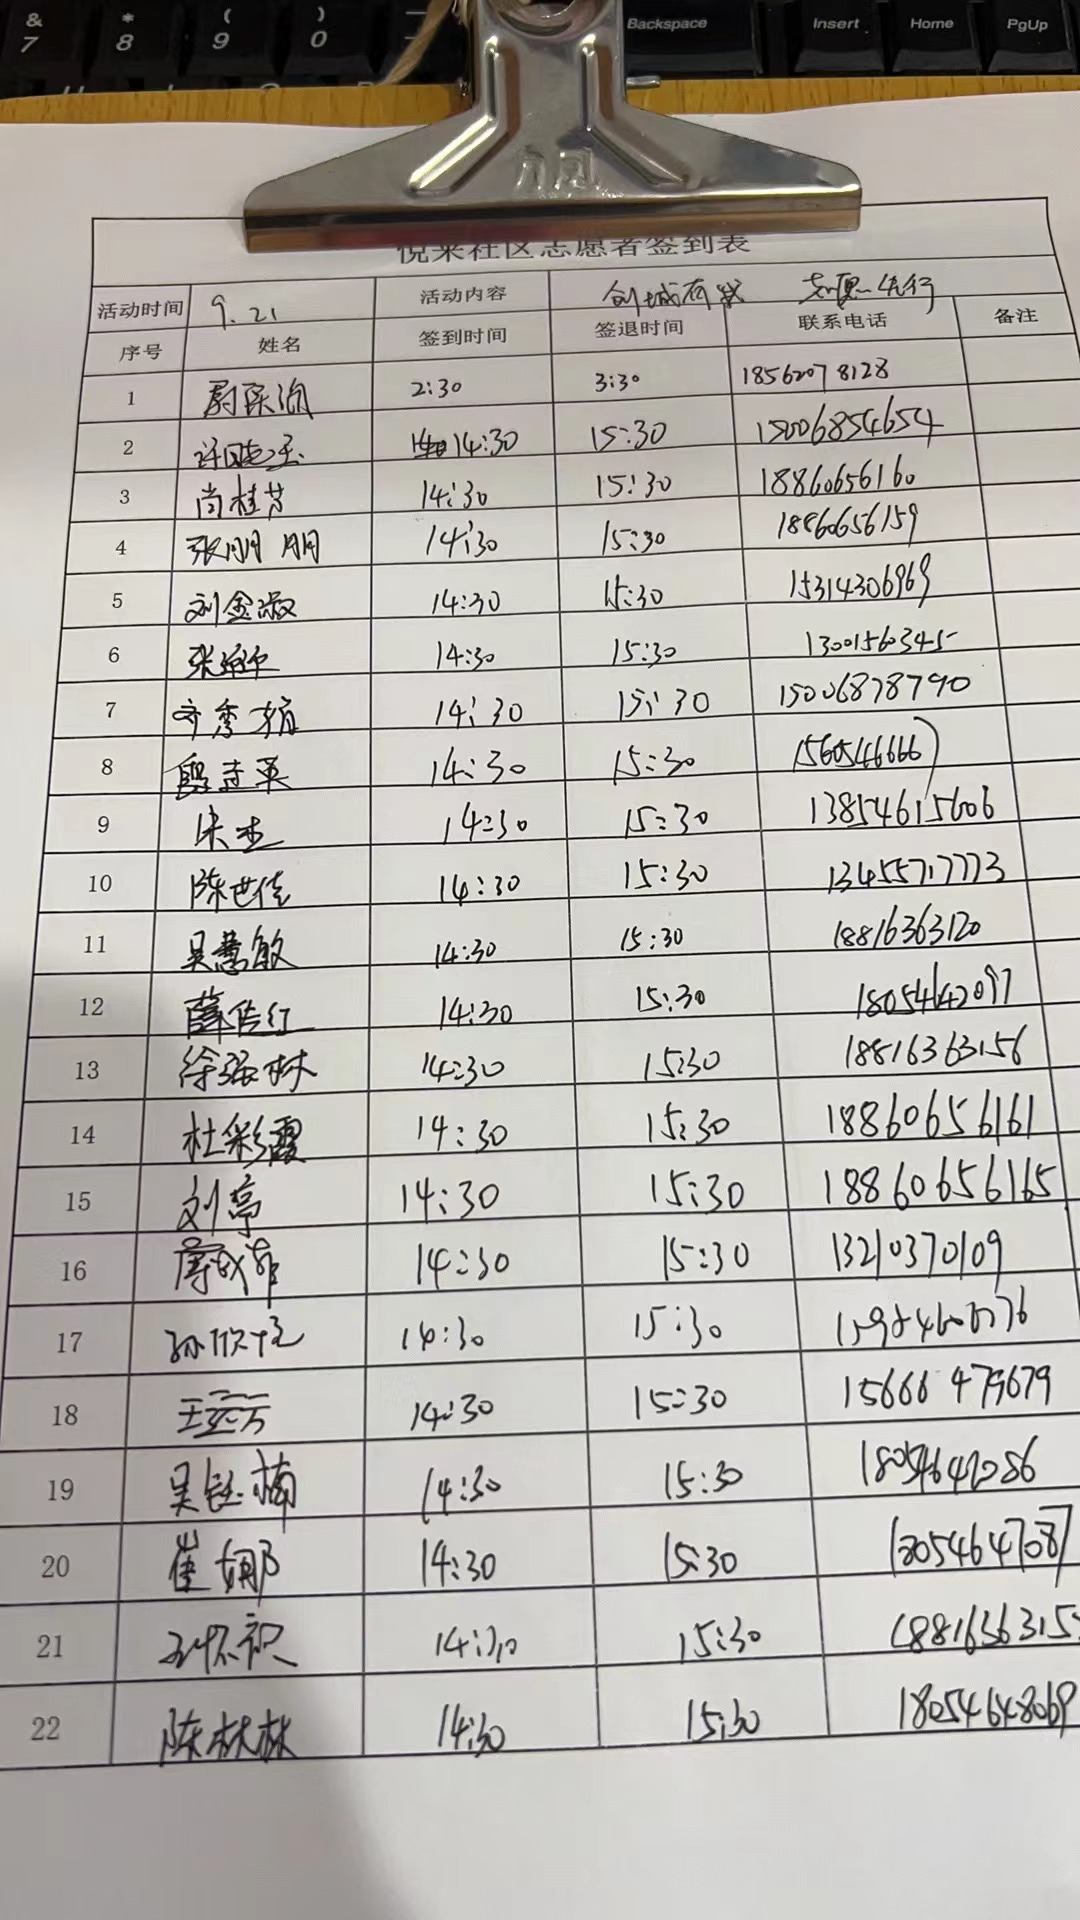 & 7
* 8
( 9
) 0
Backspace
Insert
Home
PgUp
悦来社区志愿者签到表
活动时间 9.21 活动内容 创城有我 志愿先行
序号 姓名 签到时间 签退时间 联系电话 备注
1 2:30 3:30 18562078128
2 14:30 15:30 15006854654
3 尚桂芳 14:30 15:30 18860656160
4 张朋朋 14:30 15:30 18860656159
5 刘金淑 14:30 15:30 15314306969
6 14:30 15:30 13001560345
7 齐秀娟 14:30 15:30 15006878790
8 14:30 15:30
9 宋杰 14:30 15:30 13854615606
10 陈世佳 14:30 15:30 13455717773
11 吴慧敏 14:30 15:30 18816363120
12 薛传红 14:30 15:30 18054642097
13 徐强林 14:30 15:30 18816363156
14 杜彩霞 14:30 15:30 18860656161
15 刘亭 14:30 15:30 18860656165
16 14:30 15:30 13210370109
17 14:30 15:30
18 14:30 15:30 15666479679
19 吴钰楠 14:30 15:30 18054642086
20 崔娜 14:30 15:30 18054647087
21 14:30 15:30
22 陈林林 14:30 15:30 18054648069